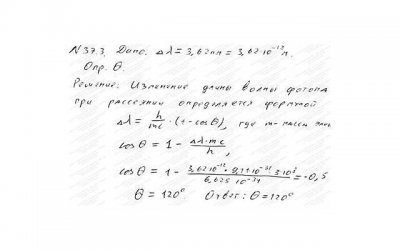 N 37.3. Дано. Δλ = 3,62 пм = 3,62·10⁻¹² м.
Опр. Θ.
Решение: Изменение длины волны фотона
при рассеянии определяется формулой
Δλ = h/mc · (1 - cosΘ), где m-масса эл
cosΘ = 1 - Δλ·mc/h,
cosΘ = 1 - 3,62·10⁻¹² · 9,11·10⁻³¹ · 3·10⁸/6,625·10⁻³⁴ = -0,5
Θ = 120° Ответ: Θ = 120°